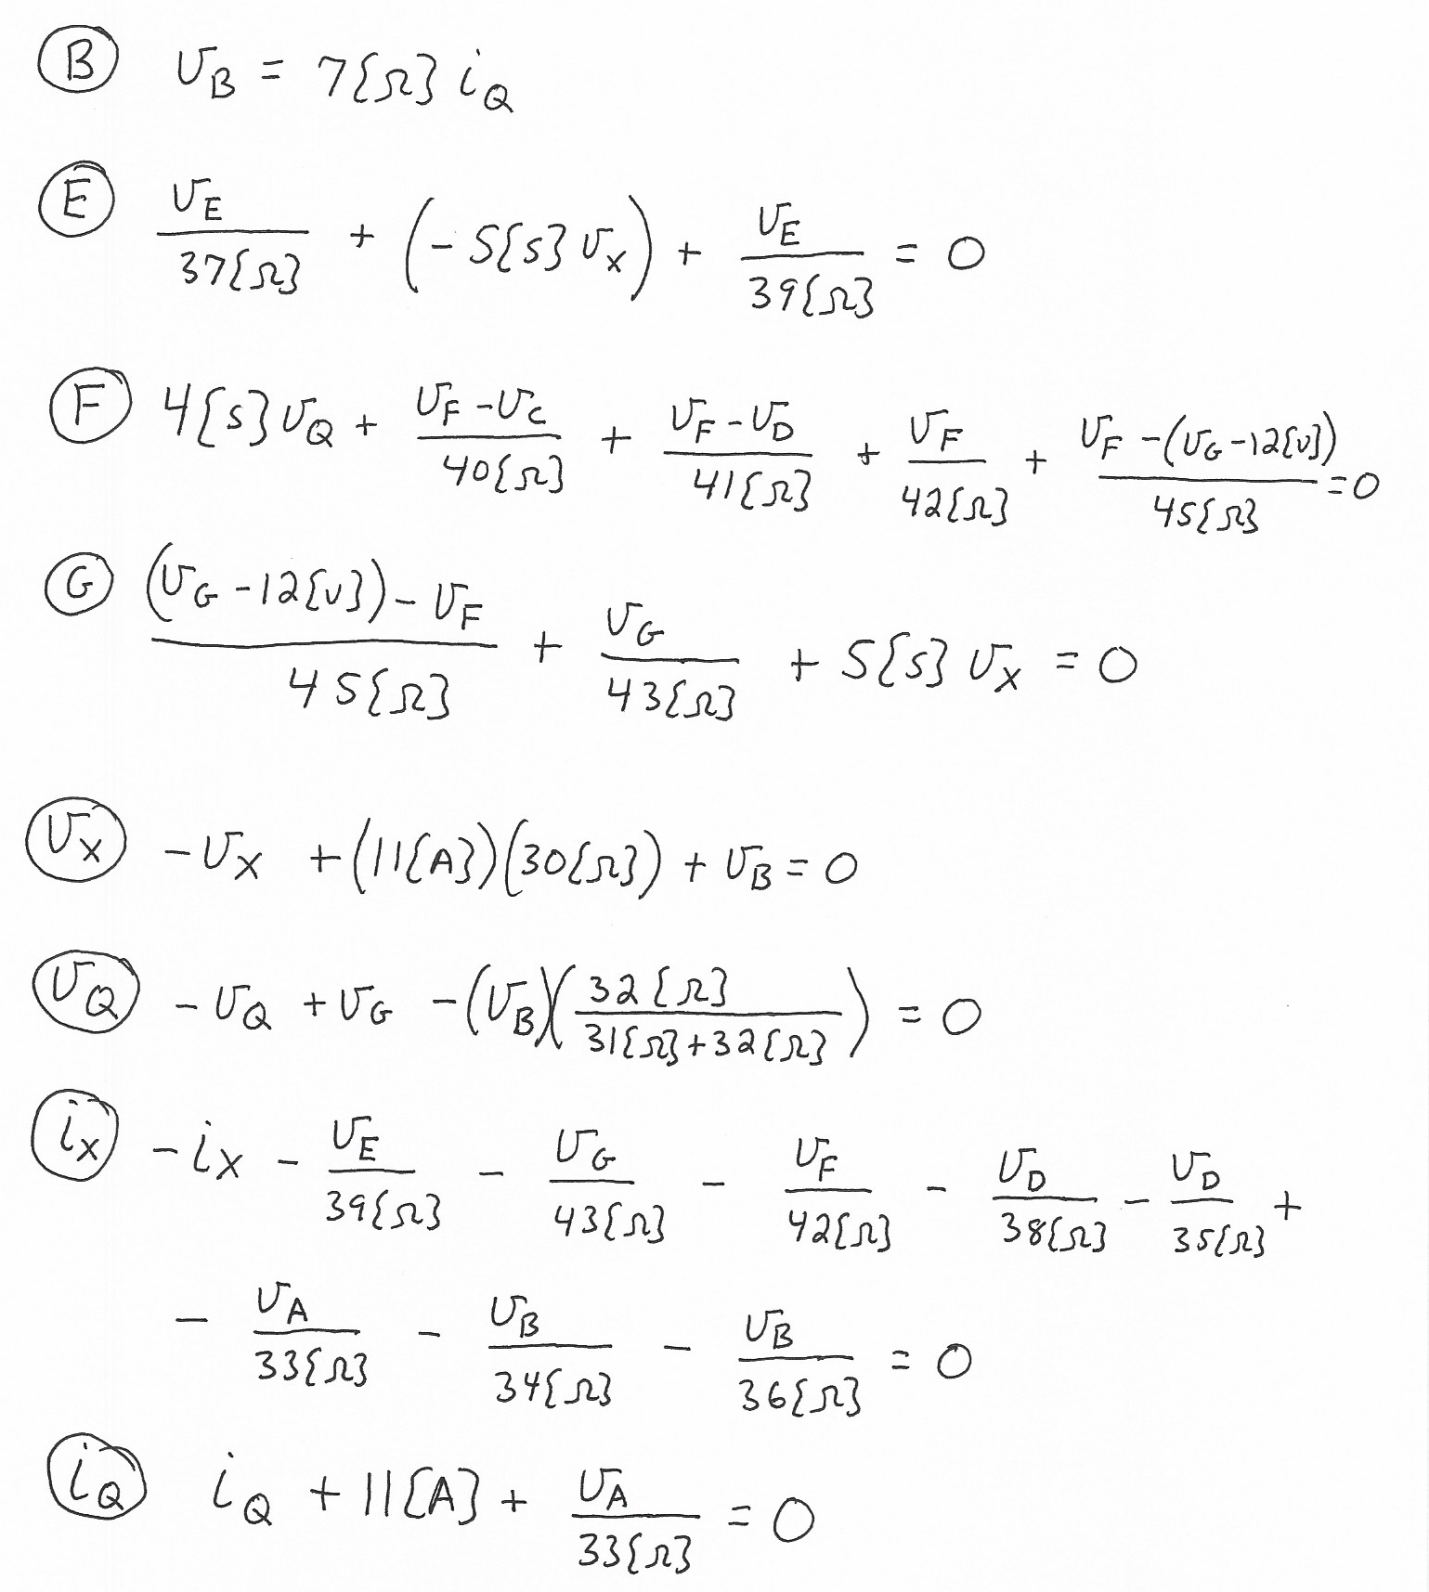 (B) v_B = 7{Ω} i_Q
(E) v_E / 37{Ω} + (-5{S} v_X) + v_E / 39{Ω} = 0
(F) 4{S} v_Q + (v_F - v_C) / 40{Ω} + (v_F - v_D) / 41{Ω} + v_F / 42{Ω} + (v_F - (v_G - 12{V})) / 45{Ω} = 0
(G) ((v_G - 12{V}) - v_F) / 45{Ω} + v_G / 43{Ω} + 5{S} v_X = 0
(v_X) -v_X + (11{A})(30{Ω}) + v_B = 0
(v_Q) -v_Q + v_G - (v_B)(32{Ω} / 31{Ω}+32{Ω}) = 0
(i_X) -i_X - v_E / 39{Ω} - v_G / 43{Ω} - v_F / 42{Ω} - v_D / 38{Ω} - v_D / 35{Ω} +
- v_A / 33{Ω} - v_B / 34{Ω} - v_B / 36{Ω} = 0
(i_Q) i_Q + 11{A} + v_A / 33{Ω} = 0